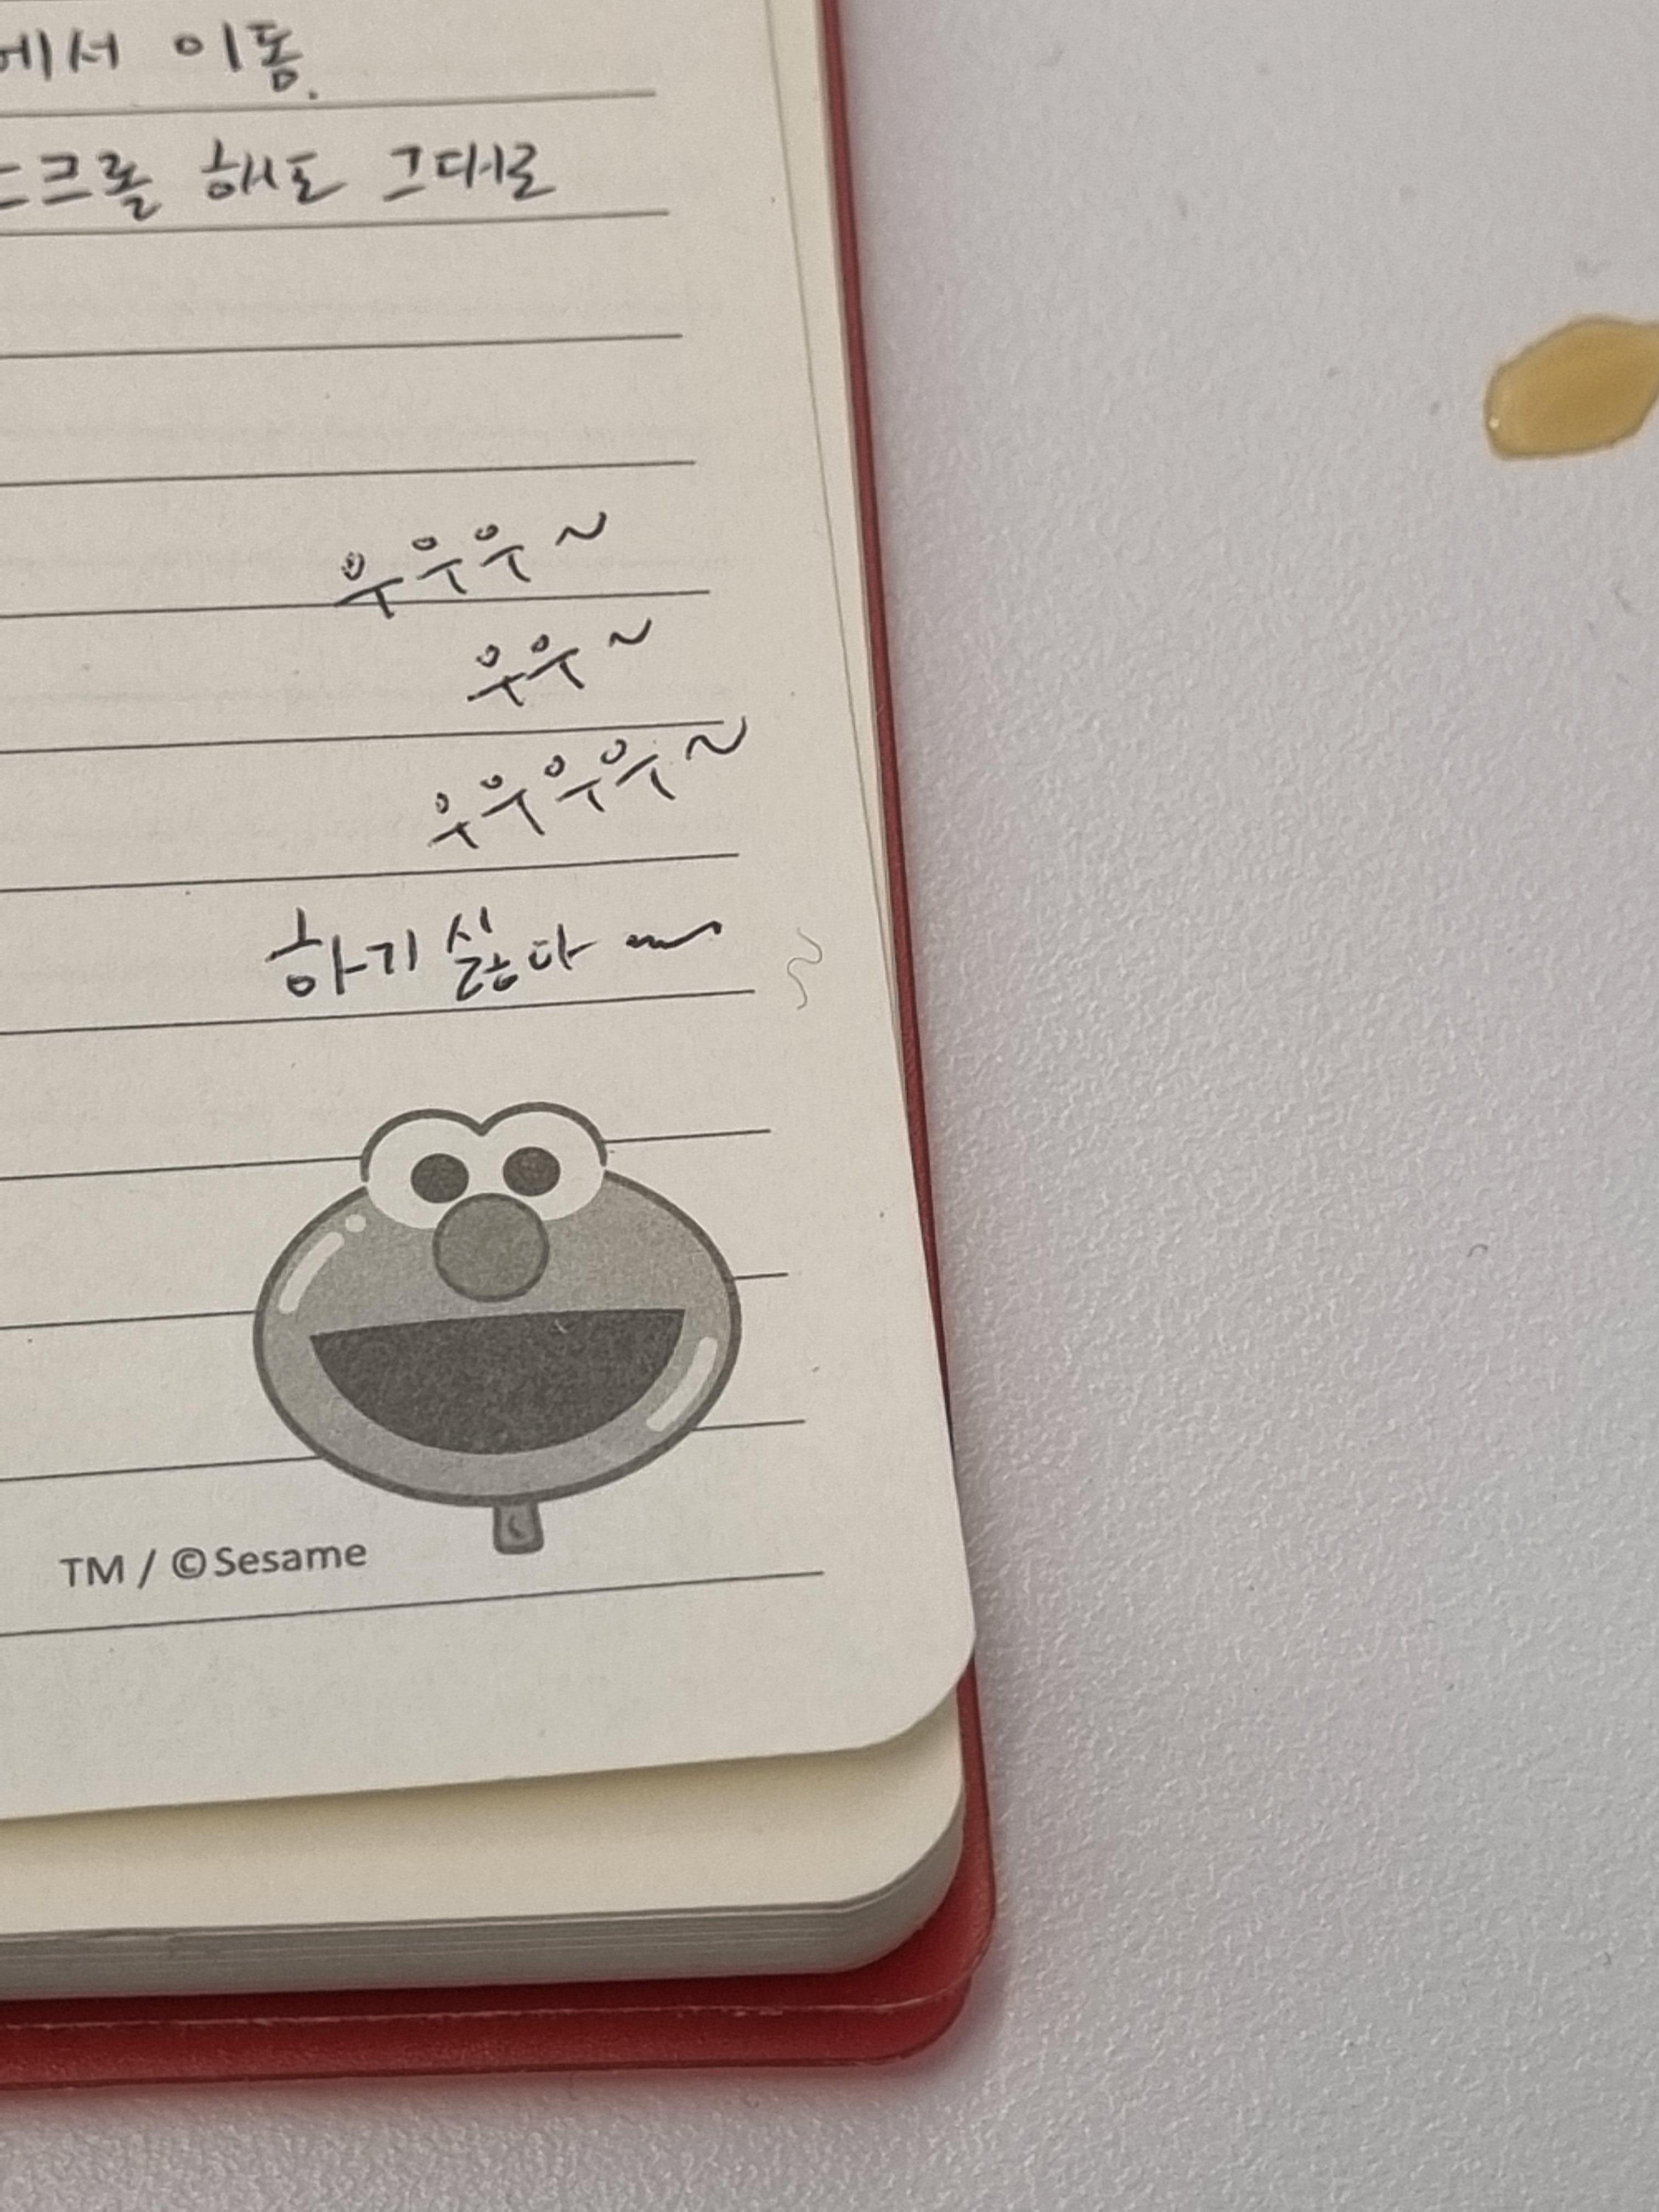 에서 이동.
스크롤 해도 그대로
우우우~
우우~
우우우우~
하기 싫다~
TM / ©Sesame